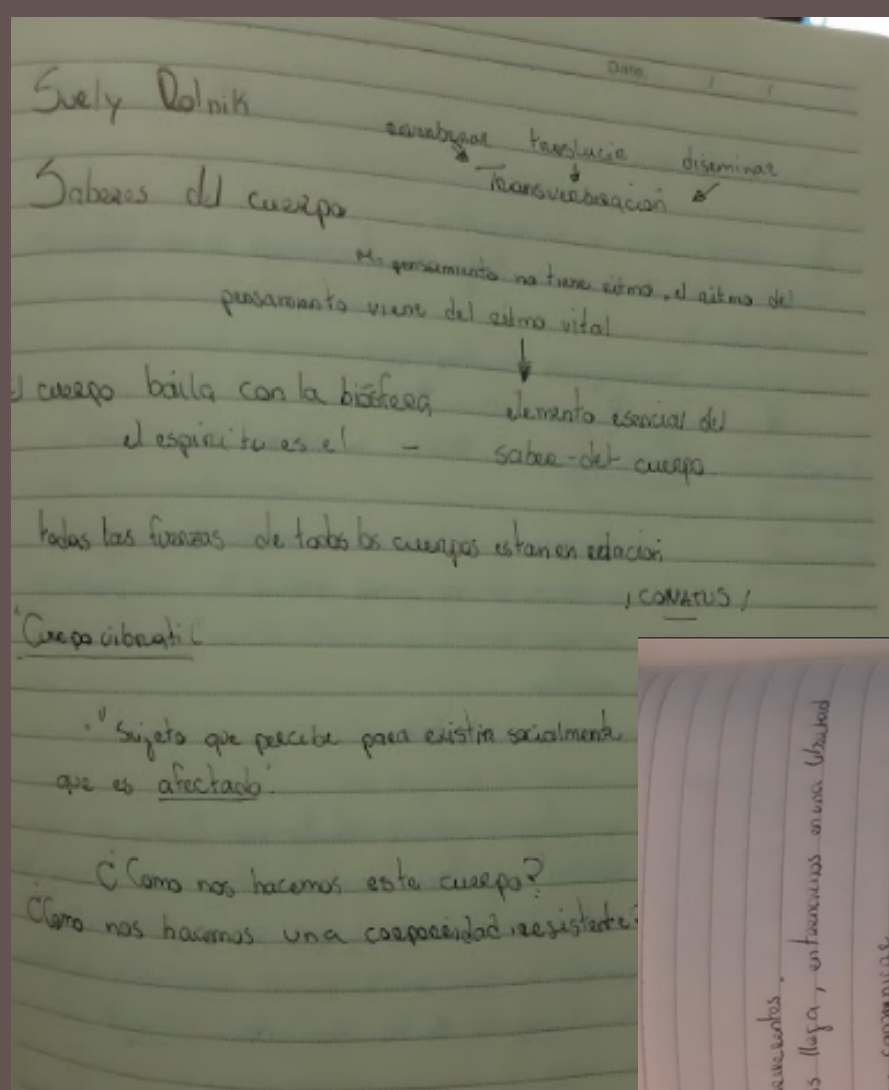 Data / /
Suely Rolnik
translucir diseminar
Saberes del cuerpo
Transverberación
Mi pensamiento no tiene ritmo, el ritmo del
pensamiento viene del ritmo vital
el cuerpo baila con la biósfera
elemento esencial del
el espíritu es el -
saber-del cuerpo
todas las fuerzas de todos los cuerpos estan en relación
¡CONATUS!
Cuerpo vibratil
"Sujeto que percibe para existir socialmente
que es afectado.
¿Como nos hacemos este cuerpo?
¿Como nos hacemos una corporeidad resistente?
s llega, entrenarnos en una libertad